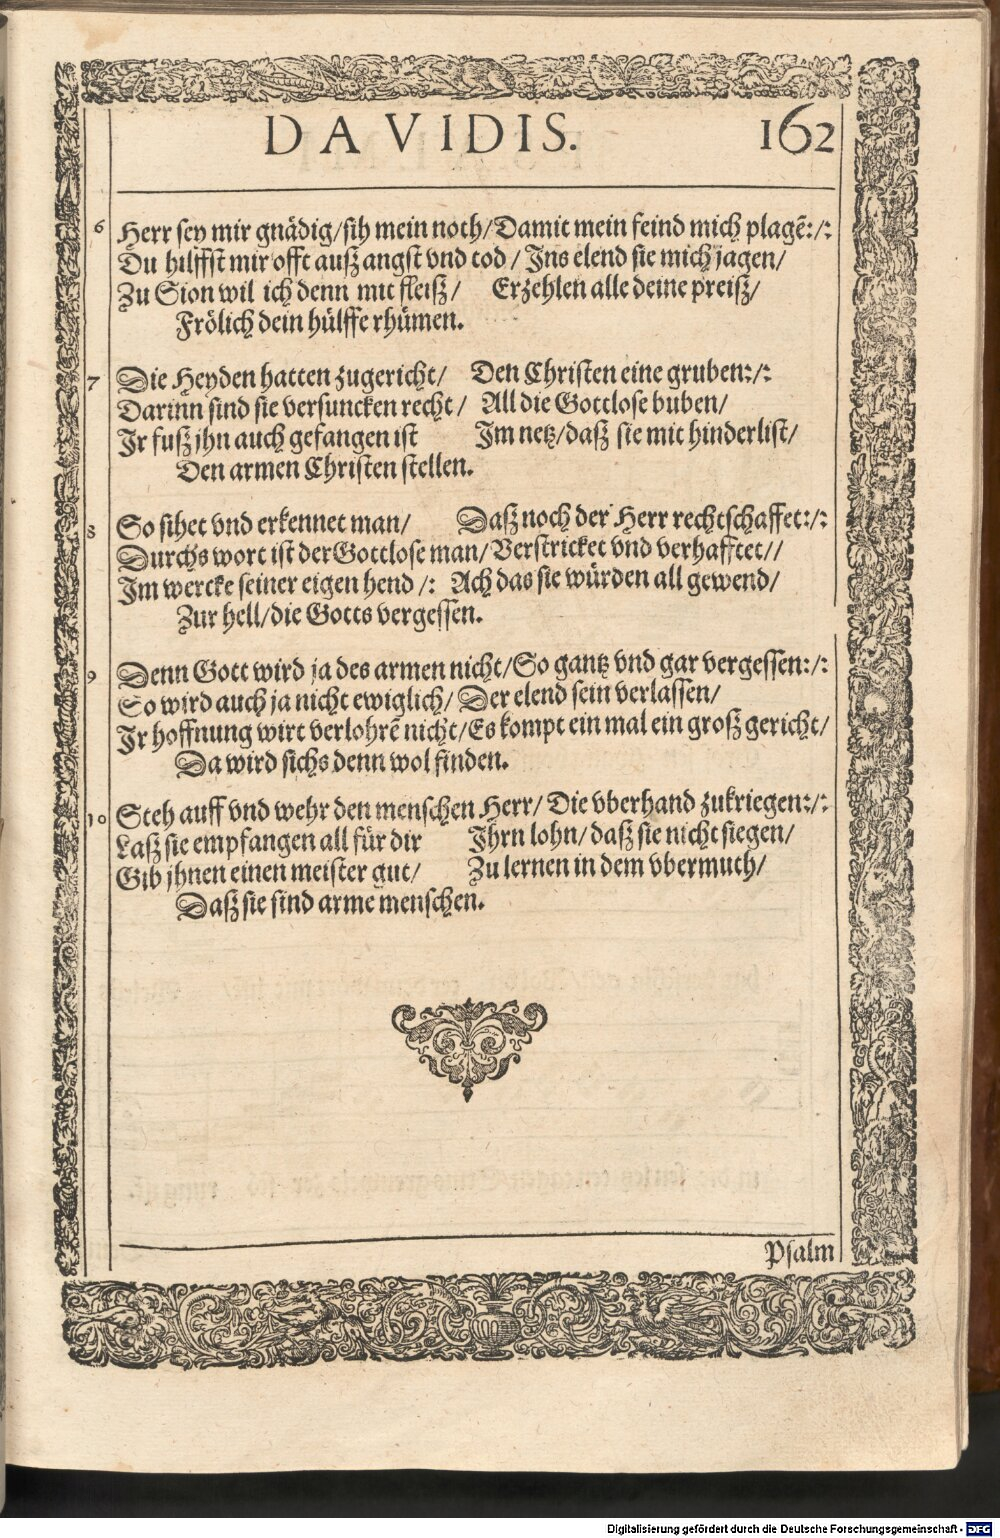 DAVIDIS. 162
6 Herr sey mir gnädig/sih mein noth/Damit mein feind mich plagẽ:/:
Du hilffst mir offt ausz angst vnd tod / Ins elend sie mich jagen/
Zu Sion wil ich denn mit fleisz/ Erzehlen alle deine preisz/
Frölich dein hülffe rhümen.
7 Die Heyden hatten zugericht/ Den Christen eine gruben:/:
Darinn sind sie versuncken recht/ All die Gottlose buben/
Ir fusz jhn auch gefangen ist Im netz/dasz sie mit hinderlist/
Den armen Christen stellen.
8 So sihet vnd erkennet man/ Dasz noch der Herr rechtschaffet:/:
Durchs wort ist der Gottlose man/Verstricket vnd verhafftet//
Im wercke seiner eigen hend /: Ach das sie würden all gewend/
Zur hell/die Gotts vergessen.
9 Denn Gott wird ja des armen nicht/So gantz vnd gar vergessen:/:
So wird auch ja nicht ewiglich/ Der elend sein verlassen/
Ir hoffnung wirt verlohrẽ nicht/Es kompt ein mal ein grosz gericht/
Da wird sichs denn wol finden.
10 Steh auff vnd wehr den menschen Herr/ Die vberhand zukriegen:/:
Lasz sie empfangen all für dir Ihrn lohn/dasz sie nicht siegen/
Gib jhnen einen meister gut/ Zu lernen in dem vbermuth/
Dasz sie sind arme menschen.
Psalm
Digitalisierung gefördert durch die Deutsche Forschungsgemeinschaft - DFG